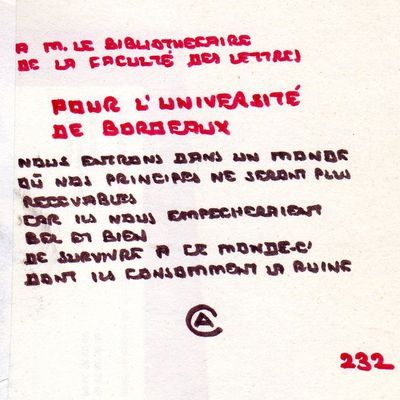 A M. LE BIBLIOTHECAIRE
DE LA FACULTÉ DES LETTRES
POUR L'UNIVERSITÉ
DE BORDEAUX
NOUS ENTRONS DANS UN MONDE
OÙ NOS PRINCIPES NE SERONT PLUS
RECEVABLES
CAR ILS NOUS EMPECHERAIENT
BEL ET BIEN
DE SURVIVRE A CE MONDE-CI
DONT ILS CONSOMMENT LA RUINE
CA
232